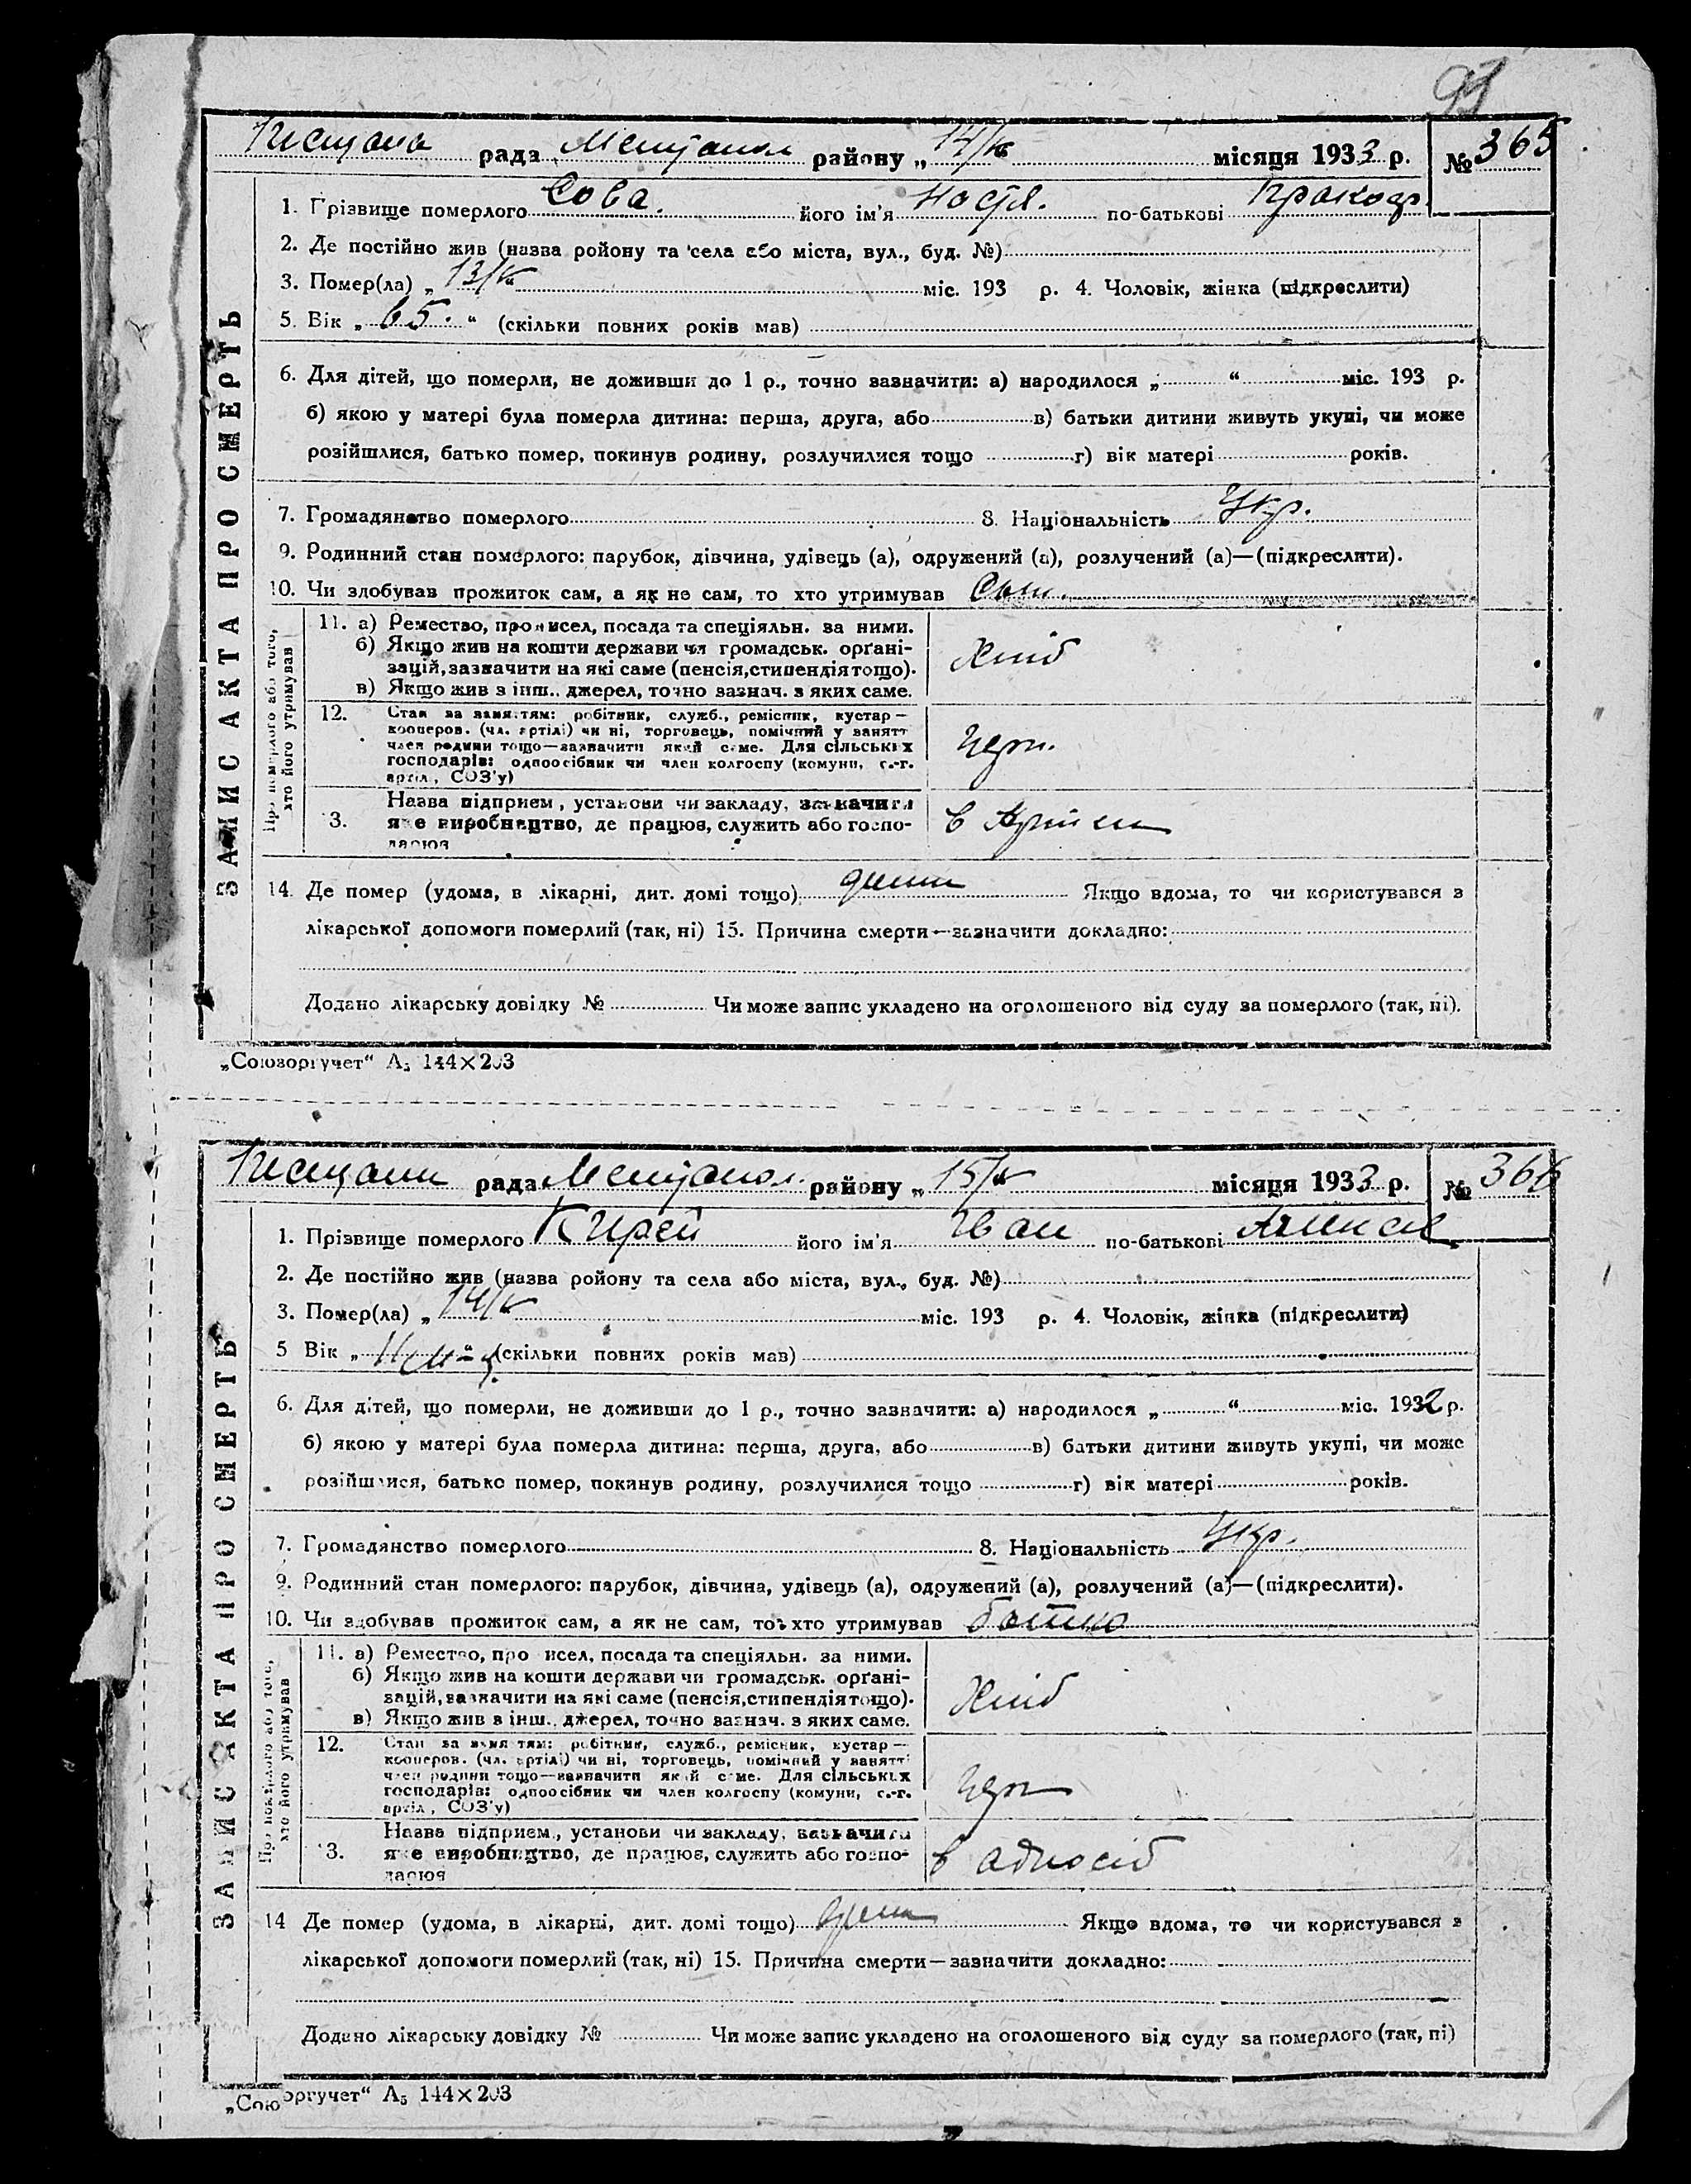 93
Піщана рада Мелітопол району „14/V місяця 1933 р. № 365
ЗАПИС АКТА ПРО СМЕРТЬ
1. Прізвище померлого Сова. його ім’я Настя. по-батькові Прокоф.
2. Де постійно жив (назва ройону та села або міста, вул., буд. №)
3. Помер(ла) „ 13/V міс. 193 р. 4. Чоловік, жінка (підкреслити)
5. Вік „ 65. “ (скільки повних років мав)
6. Для дітей, що померли, не доживши до 1 р., точно зазначити: а) народилося „ “ міс. 193 р.
б) якою у матері була померла дитина: перша, друга, або в) батьки дитини живуть укупі, чи може
розійшлися, батько помер, покинув родину, розлучилися тощо г) вік матері років.
7. Громадянство померлого 8. Національність Укр.
9. Родинний стан померлого: парубок, дівчина, удівець (а), одружений (а), розлучений (а)—(підкреслити).
10. Чи здобував прожиток сам, а як не сам, то хто утримував
Про померлого або того, хто його утримував
11. а) Ремество, промисел, посада та спеціяльн. за ними.
б) Якщо жив на кошти держави чи громадськ. орґані-
зацій, зазначити на які саме (пенсія, стипендія тощо).
в) Якщо жив з інш.. джерел, точно зазнач. з яких саме.
Хліб
12. Стан за заняттям: робітник, служб., ремісник, кустар—
кооперов. (чл. артілі) чи ні, торговець, помічний у занятт
член родини тощо—зазначити який саме. Для сільських
господарів: одноосібник чи член колгоспу (комуни, с.-г.
артіл, СОЗ’у)
13. Назва підприєм, установи чи закладу, зазначити
яке виробництво, де працює, служить або госпо-
дарює
в Артіли
14. Де помер (удома, в лікарні, дит. домі тощо) Якщо вдома, то чи користувався з
лікарської допомоги померлий (так, ні) 15. Причина смерти—зазначити докладно:
Додано лікарську довідку № Чи може запис укладено на оголошеного від суду за померлого (так, ні).
„Союзоргучет“ А5 144×203
Піщани рада Мелітопол. району „ 15/V місяця 1933 р. № 366
ЗАПИС АКТА ПРО СМЕРТЬ
1. Прізвище померлого Кирей його ім’я Іван по-батькові Алексе
2. Де постійно жив (назва ройону та села або міста, вул., буд. №)
3. Помер(ла) „ 14/V міс. 193 р. 4. Чоловік, жінка (підкреслити)
5 Вік „ 11 “ (скільки повних років мав)
6. Для дітей, що померли, не доживши до 1 р., точно зазначити: а) народилося „ “ міс. 1932 р.
б) якою у матері була померла дитина: перша, друга, або в) батьки дитини живуть укупі, чи може
розійшлися, батько помер, покинув родину, розлучилися тощо г) вік матері років.
7. Громадянство померлого 8. Національність Укр.
9. Родинний стан померлого: парубок, дівчина, удівець (а), одружений (а), розлучений (а)—(підкреслити).
10. Чи здобував прожиток сам, а як не сам, то хто утримував батько
Про померлого або того, хто його утримував
11. а) Ремество, промисел, посада та спеціяльн. за ними.
б) Якщо жив на кошти держави чи громадськ. орґані-
зацій, зазначити на які саме (пенсія, стипендія тощо).
в) Якщо жив з інш.. джерел, точно зазнач. з яких саме.
Хліб
12. Стан за заняттям: робітник, служб., ремісник, кустар—
кооперов. (чл. артілі) чи ні, торговець, помічний у занятт
член родини тощо—зазначити який саме. Для сільських
господарів: одноосібник чи член колгоспу (комуни, с.-г.
артіл, СОЗ’у)
13. Назва підприєм., установи чи закладу, зазначити
яке виробництво, де працює, служить або госпо-
дарює
в односіб
14 Де помер (удома, в лікарні, дит. домі тощо) Якщо вдома, то чи користувався з
лікарської допомоги померлий (так, ні) 15. Причина смерти—зазначити докладно:
Додано лікарську довідку № Чи може запис укладено на оголошеного від суду за померлого (так, ні)
„Союзоргучет“ А5 144×203